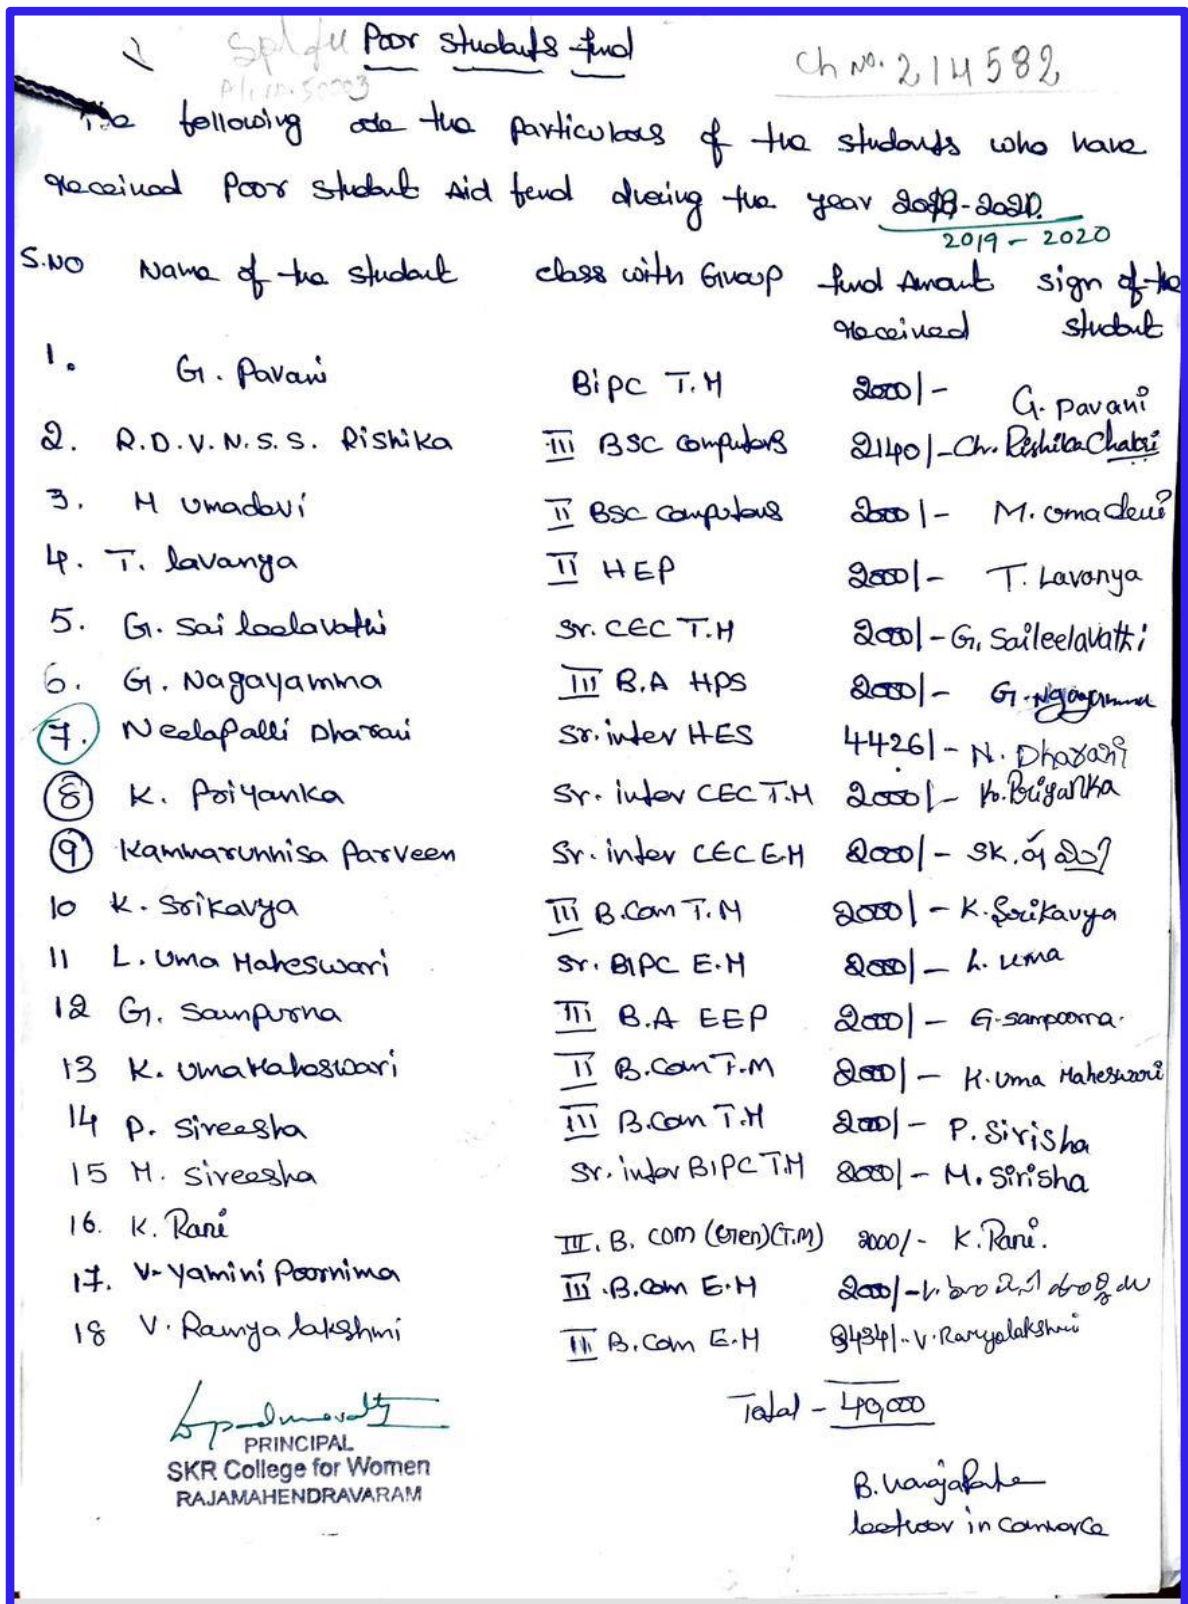 Spl fee Poor Students fund
Ch No. 214582
A/c no. 50003
The following are the particulars of the students who have
received Poor student Aid fund during the year
2019 - 2020
S.NO Name of the student class with Group fund Amount sign of the
received student
1. G. Pavani BiPC T.M 2000/- G. Pavani
2. R.D.V.N.S.S. Rishika III BSC computers 2140/- Ch. Rishika Chakri
3. M Umadevi II BSC computers 2000/- M. Umadevi
4. T. lavanya II HEP 2000/- T. Lavanya
5. G. Sai leelavathi Sr. CEC T.M 2000/- G. Saileelavathi
6. G. Nagayamma III B.A HPS 2000/- G.
7. Neelapalli Dharani Sr. inter HES 4426/- N. Dharani
8 K. Priyanka Sr. inter CEC T.M 2000/- K. Priyanka
9 Kammarunnisa Parveen Sr. inter CEC E.M 2000/- SK.
10 K. Srikavya III B.Com T.M 2000/- K. Srikavya
11 L. Uma Maheswari Sr. BIPC E.M 2000/- L. Uma
12 G. Sampurna III B.A EEP 2000/- G. Sampoorna.
13 K. Uma Maheswari II B.Com T.M 2000/- K. Uma Maheswari
14 P. Sireesha III B.Com T.M 2000/- P. Sirisha
15 M. Sireesha Sr. inter BIPC T.M 2000/- M. Sirisha
16. K. Rani III. B. Com (Gen)(T.M) 2000/- K. Rani.
17. V. Yamini Poornima III .B.Com E.M 2000/-
18 V. Ramya lakshmi III B.Com E.M 3434/- V. Ramyalakshmi
Total - 40,000
PRINCIPAL
SKR College for Women
RAJAMAHENDRAVARAM
lecturer in commerce